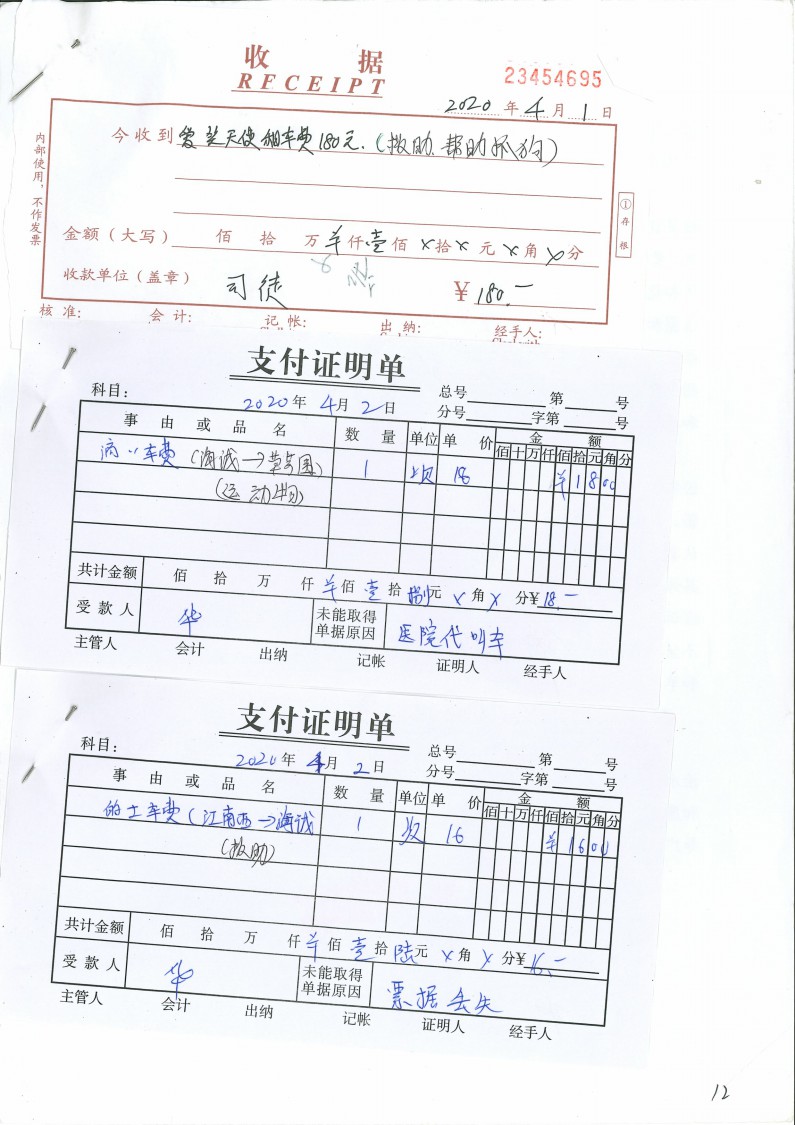 收 据
RECEIPT
23454695
2020 年 4 月 1 日
内部使用,不作发票
今收到 爱芝天使租车费180元.(救助.帮助抓狗)
① 存根
金额(大写) 佰 拾 万 羊 仟 壹 佰 × 拾 × 元 × 角 × 分
收款单位(盖章) 司徒 ¥ 180.-
核 准: 会 计: 记 帐: 出 纳: 经手人:
支付证明单
科目: 2020 年 4 月 2 日 总号 第 号
分号 字第 号
事 由 或 品 名 数 量 单位 单 价 金 额
佰 十 万 仟 佰 拾 元 角 分
滴〃车费(海诚→ 1 次 18 ¥ 1 8 0 0
(运动物)
共计金额 佰 拾 万 仟 羊 佰 壹 拾 捌 元 × 角 × 分 ¥ 18.-
受 款 人 华 未能取得单据原因 医院代叫车
主管人 会计 出纳 记帐 证明人 经手人
支付证明单
科目: 2020 年 4 月 2 日 总号 第 号
分号 字第 号
事 由 或 品 名 数 量 单位 单 价 金 额
佰 十 万 仟 佰 拾 元 角 分
的士车费(江南西→海诚 1 次 16 ¥ 1 6 0 0
(救助)
共计金额 佰 拾 万 仟 羊 佰 壹 拾 陆 元 × 角 × 分 ¥ 16.-
受 款 人 华 未能取得单据原因 票据丢失
主管人 会计 出纳 记帐 证明人 经手人
12